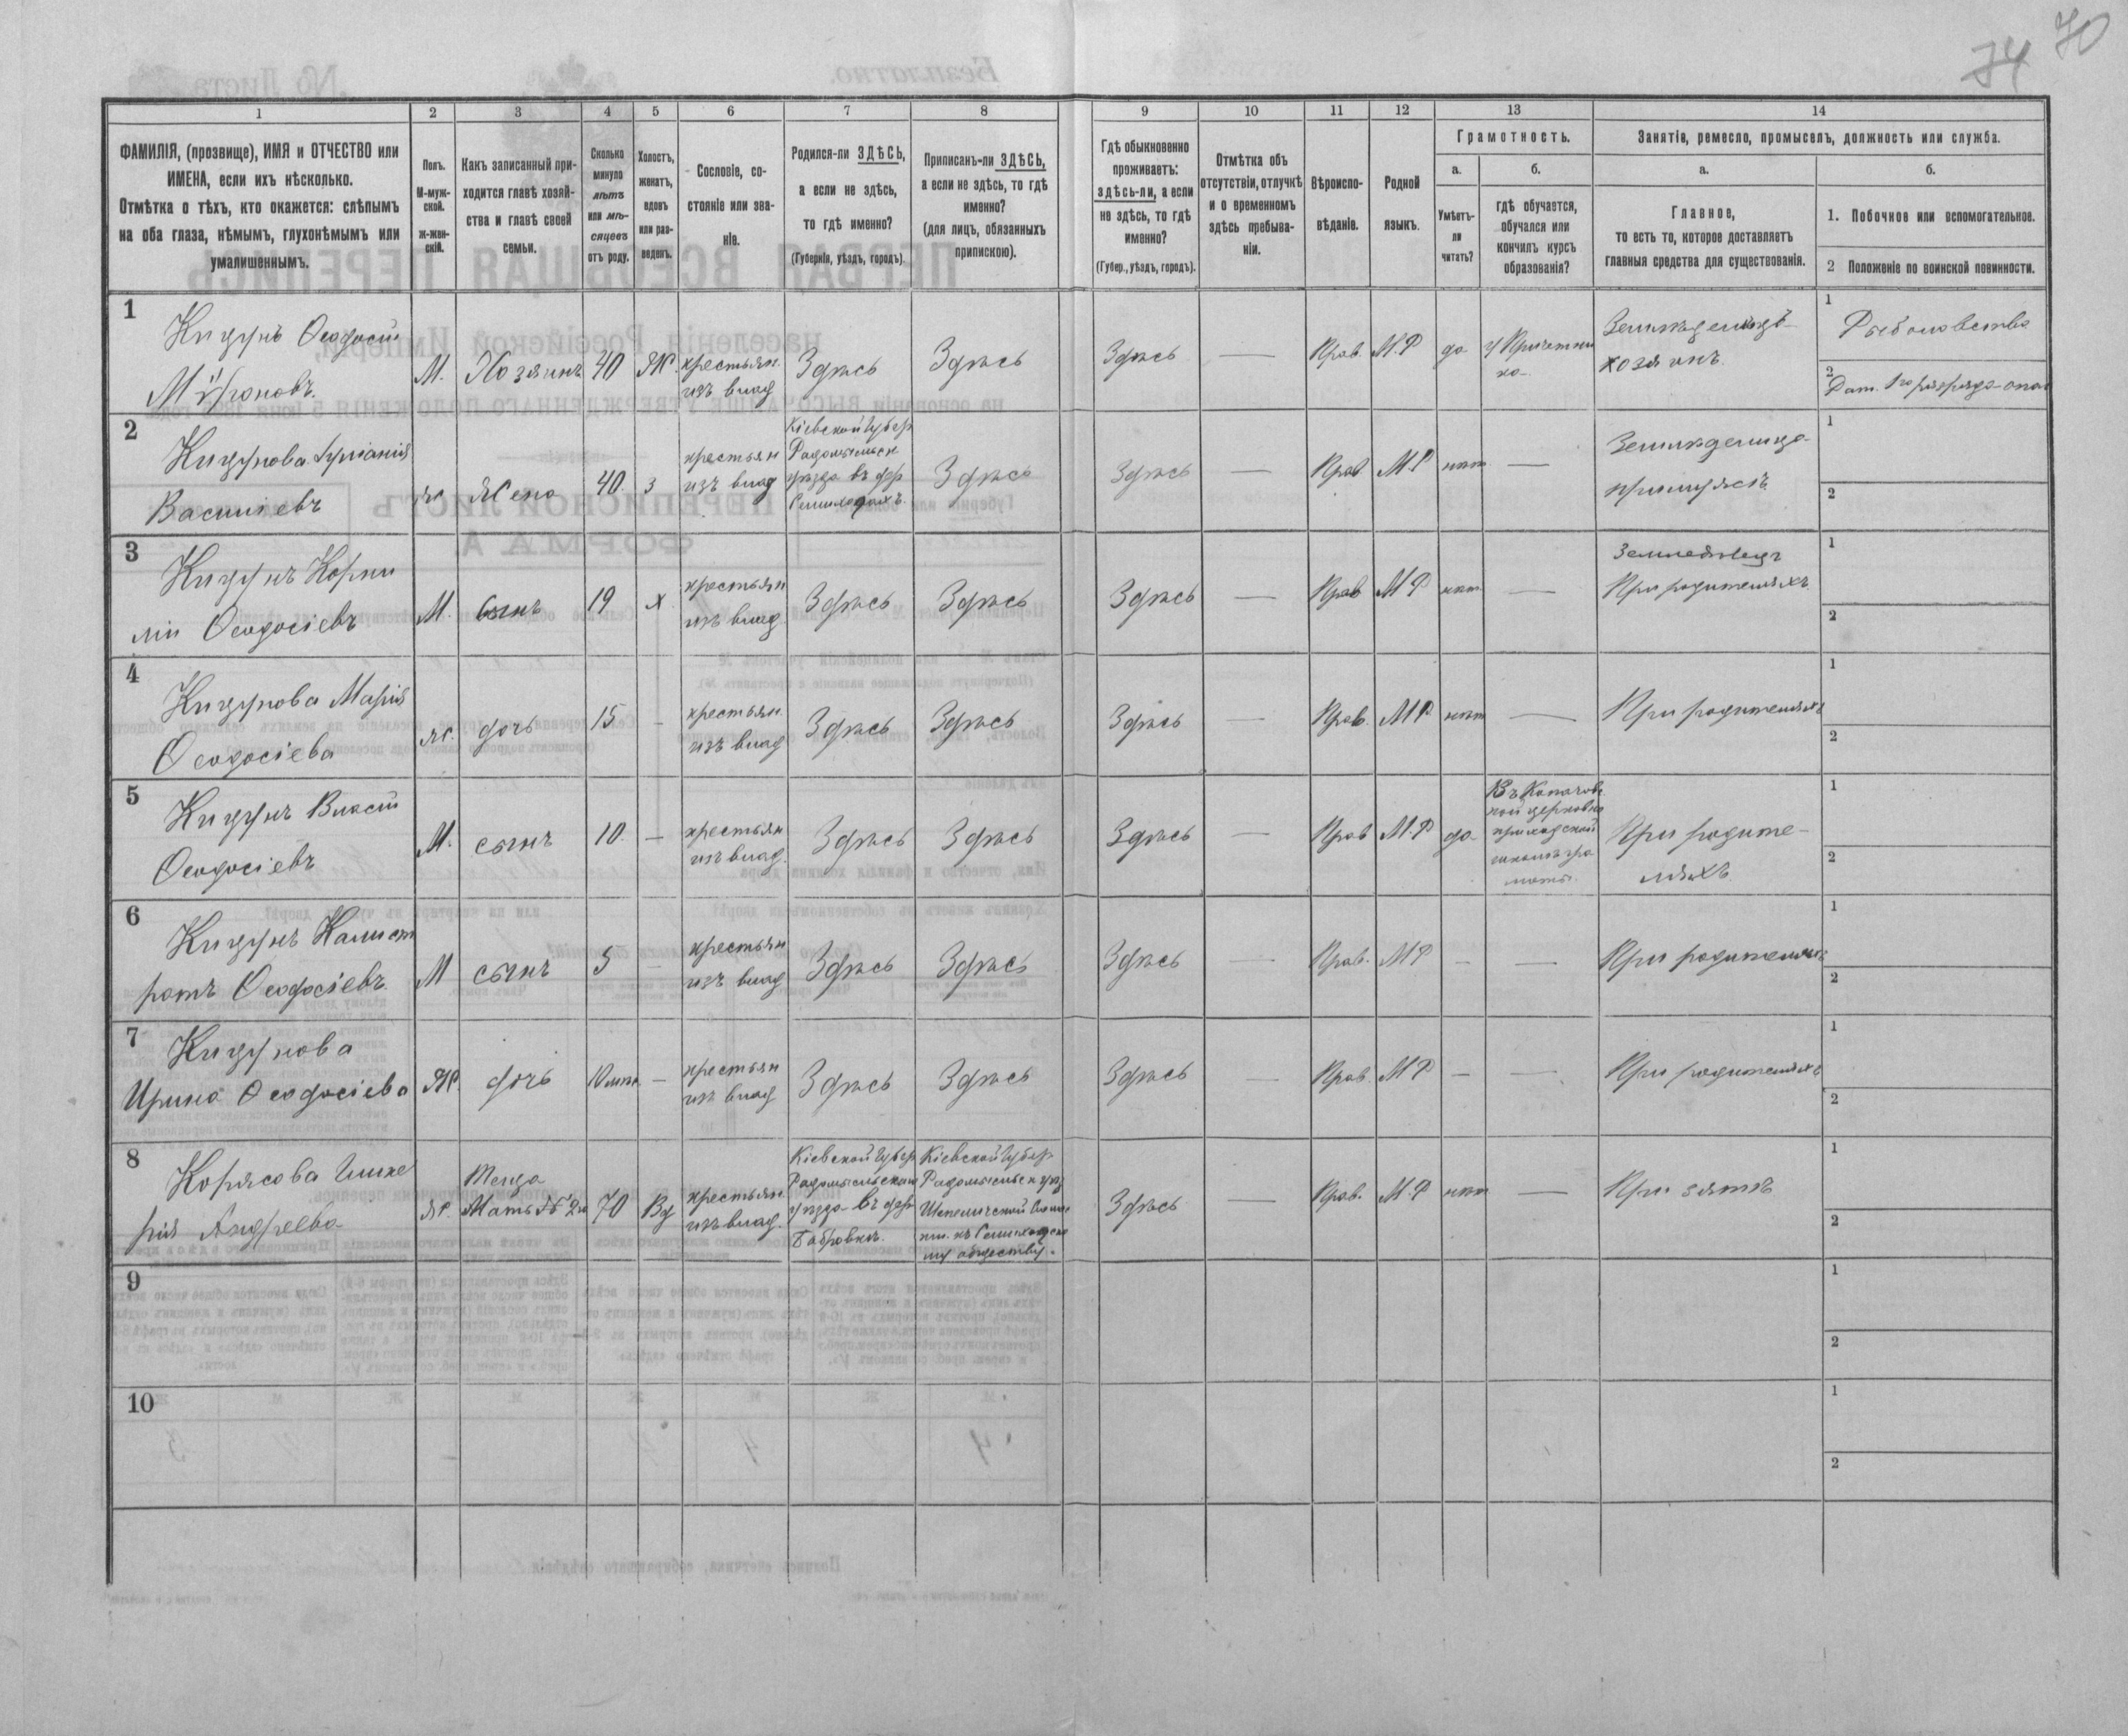 70
74
1
2
3
4
5
6
7
8
9
10
11
12
13
14
ФАМИЛІЯ, (прозвище), ИМЯ и ОТЧЕСТВО или
ИМЕНА, если ихъ нѣсколько.
Отмѣтка о тѣхъ, кто окажется: слѣпымъ
на оба глаза, нѣмымъ, глухонѣмымъ или
умалишеннымъ.
Полъ.
М-муж-
ской.
ж-жен-
скій.
Какъ записанный при-
ходится главѣ хозяй-
ства и главѣ своей
семьи.
Сколько
минуло
лѣтъ
или мѣ-
сяцевъ
отъ роду.
Холостъ,
женатъ,
вдовъ
или раз-
веденъ.
Сословіе, со-
стояніе или зва-
ніе.
Родился-ли ЗДѢСЬ,
а если не здѣсь,
то гдѣ именно?
(Губернія, уѣздъ, городъ).
Приписанъ-ли ЗДѢСЬ,
а если не здѣсь, то гдѣ
именно?
(для лицъ, обязанныхъ
припискою).
Гдѣ обыкновенно
проживаетъ:
здѣсь-ли, а если
не здѣсь, то гдѣ
именно?
(Губер., уѣздъ, городъ).
Отмѣтка объ
отсутствіи, отлучкѣ
и о временномъ
здѣсь пребыва-
ніи.
Вѣроиспо-
вѣданіе.
Родной
языкъ.
Грамотность.
а.
Умѣетъ-
ли
читать?
б.
гдѣ обучается,
обучался или
кончилъ курсъ
образованія?
Занятіе, ремесло, промыселъ, должность или служба.
а.
Главное,
то есть то, которое доставляетъ
главныя средства для существованія.
б.
1. Побочное или вспомогательное.
2 Положеніе по воинской повинности.
1
Кицунъ Ѳеодосій
Мѵроновъ.
М.
Хозяинъ
40
Ж.
крестьян.
изъ влад
Здѣсь
Здѣсь
Здѣсь
—
Прав.
М.Р
да
у Причетни
ка
Земледѣлецъ
хозяинъ.
1
Рыболовство
2
2
Кицунова
Василіевъ
Жена
40
З
крестьян
изъ влад
Кіевской Губер
Радомысльск
уѣзда въ дер
Здѣсь
Здѣсь
—
Прав
М.Р
нѣт
—
1
2
3
Кицунъ Корни
лій Ѳеодосіевъ
М.
Сынъ
19
х.
крестьян
изъ влад
Здѣсь
Здѣсь
Здѣсь
—
Прав
М Р
нѣт.
—
Земледѣлецъ
При родителяхъ.
1
2
4
Кицунова Марія
Ѳеодосіева
Ж.
дочь
15
—
крестьян.
изъ влад
Здѣсь
Здѣсь
Здѣсь
—
Прав.
М Р
нѣт
—
При родителяхъ
1
2
5
Кицунъ Власій
Ѳеодосіевъ
М.
сынъ
10
—
крестьян
изъ влад.
Здѣсь
Здѣсь
Здѣсь
—
Прав
М.Р
да
Въ Копачов
кой церковно
приходской
школѣ гра
моты.
При родите-
ляхъ.
1
2
6
Кицунъ Калист
ратъ Ѳеодосіевъ.
М
сынъ
5
—
крестьян
изъ влад
Здѣсь
Здѣсь
Здѣсь
—
Прав.
М Р
—
—
При родителяхъ
1
2
7
Кицунова
Ирина Ѳеодосіева
Ж.
дочь
—
крестьян
изъ влад
Здѣсь
Здѣсь
Здѣсь
—
Прав
М Р
—
—
При родителяхъ
1
2
8
Андреева
Ж.
Теща
Мать № 2й
70
Вд
крестьян.
изъ влад.
Кіевской Губер
Радомысльскаго
уѣзда въ дер
Бобровкѣ.
Кіевской Губер
Радомысльск уѣз
му обществу.
Здѣсь
—
Прав.
М.Р
нѣт
—
При зятѣ
1
2
9
1
2
10
1
2